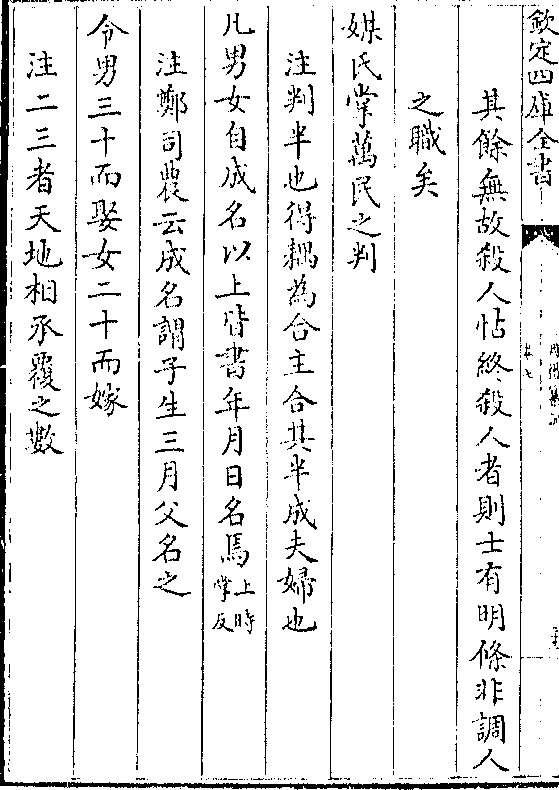 欽定四庫全書
其餘無故殺人怙終殺人者則士有明條非調人
之職矣
媒氏掌萬民之判
注判半也得耦為合主合其半成夫婦也
凡男女自成名以上皆書年月日名焉上時掌反
注鄭司農云成名謂子生三月父名之
令男三十而娶女二十而嫁
注二三者天地相承覆之數